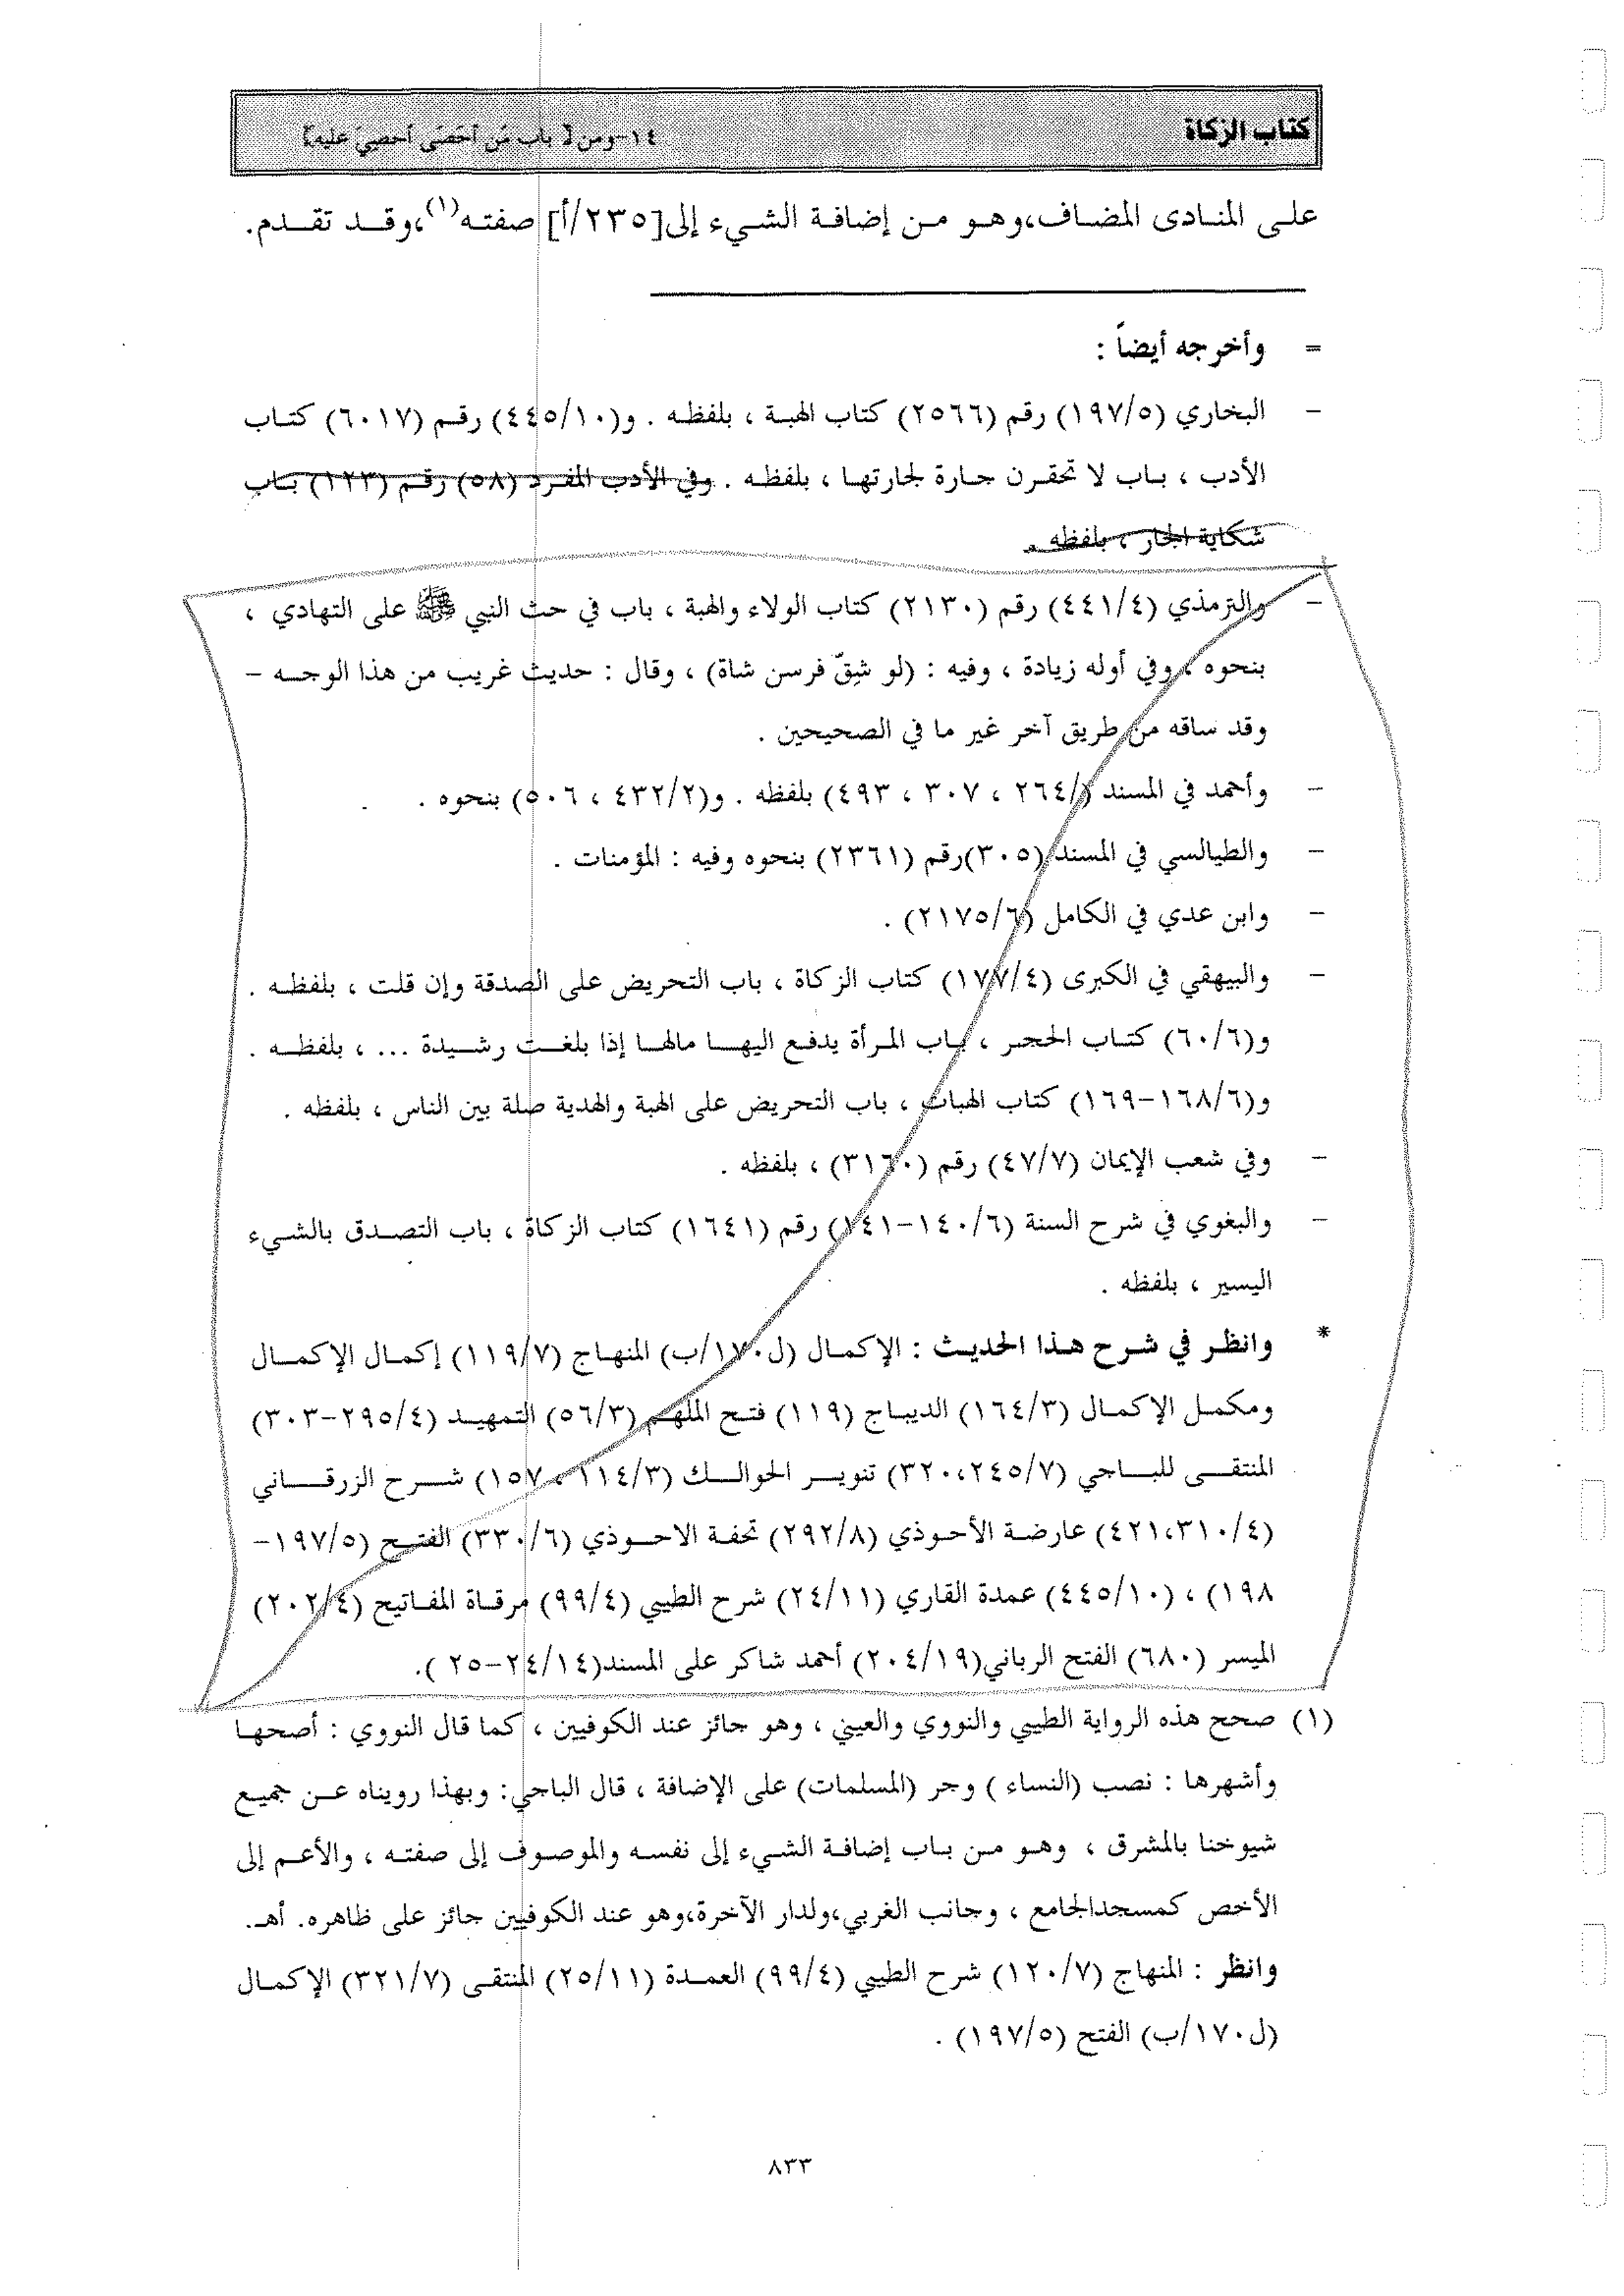 كتاب الزكاة
١٤-ومن [ باب من أحصَى أحصيَ عليه]
على المنادى المضاف،وهو من إضافة الشيء إلى[٢٣٥/أ] صفته(١)،وقد تقدم.
= وأخرجه أيضاً :
- البخاري (١٩٧/٥) رقم (٢٥٦٦) كتاب الهبة ، بلفظه . و(٤٤٥/١٠) رقم (٦٠١٧) كتاب
الأدب ، باب لا تحقرن جارة لجارتها ، بلفظه . وفي الأدب المفرد (٥٨) رقم (١٢٣) باب
شكاية الجار ، بلفظه .
- والترمذي (٤٤١/٤) رقم (٢١٣٠) كتاب الولاء والهبة ، باب في حث النبي ﷺ على التهادي ،
بنحوه ، وفي أوله زيادة ، وفيه : (لو شِقّ فرسن شاة) ، وقال : حديث غريب من هذا الوجه -
وقد ساقه من طريق آخر غير ما في الصحيحين .
- وأحمد في المسند (/٢٦٤ ، ٣٠٧ ، ٤٩٣) بلفظه . و(٤٣٢/٢ ، ٥٠٦) بنحوه .
- والطيالسي في المسند (٣٠٥)رقم (٢٣٦١) بنحوه وفيه : المؤمنات .
- وابن عدي في الكامل (٢١٧٥/٦) .
- والبيهقي في الكبرى (١٧٧/٤) كتاب الزكاة ، باب التحريض على الصدقة وإن قلت ، بلفظه .
و(٦٠/٦) كتاب الحجر ، باب المرأة يدفع اليها مالها إذا بلغت رشيدة ... ، بلفظه .
و(١٦٨/٦-١٦٩) كتاب الهبات ، باب التحريض على الهبة والهدية صلة بين الناس ، بلفظه .
- وفي شعب الإيمان (٤٧/٧) رقم (٣١٦٠) ، بلفظه .
- والبغوي في شرح السنة (١٤٠/٦-١٤١) رقم (١٦٤١) كتاب الزكاة ، باب التصدق بالشيء
اليسير ، بلفظه .
* وانظر في شرح هذا الحديث : الإكمال (ل١٧٠/ب) المنهاج (١١٩/٧) إكمال الإكمال
ومكمل الإكمال (١٦٤/٣) الديباج (١١٩) فتح الملهم (٥٦/٣) التمهيد (٢٩٥/٤-٣٠٣)
المنتقى للباجي (٣٢٠،٢٤٥/٧) تنوير الحوالك (١١٤/٣ ، ١٥٧) شرح الزرقاني
(٤٢١،٣١٠/٤) عارضة الأحوذي (٢٩٢/٨) تحفة الاحوذي (٣٣٠/٦) الفتح (١٩٧/٥-
١٩٨) ، (٤٤٥/١٠) عمدة القاري (٢٤/١١) شرح الطيبي (٩٩/٤) مرقاة المفاتيح (٢٠٢/٤)
الميسر (٦٨٠) الفتح الرباني(٢٠٤/١٩) أحمد شاكر على المسند(٢٤/١٤-٢٥ ).
(١) صحح هذه الرواية الطيبي والنووي والعيني ، وهو جائز عند الكوفيين ، كما قال النووي : أصحها
وأشهرها : نصب (النساء ) وجر (المسلمات) على الإضافة ، قال الباجي: وبهذا رويناه عن جميع
شيوخنا بالمشرق ، وهو من باب إضافة الشيء إلى نفسه والموصوف إلى صفته ، والأعم إلى
الأخص كمسجدالجامع ، وجانب الغربي،ولدار الآخرة،وهو عند الكوفيين جائز على ظاهره. أهـ.
وانظر : المنهاج (١٢٠/٧) شرح الطيبي (٩٩/٤) العمدة (٢٥/١١) المنتقى (٣٢١/٧) الإكمال
(ل١٧٠/ب) الفتح (١٩٧/٥) .
٨٣٣